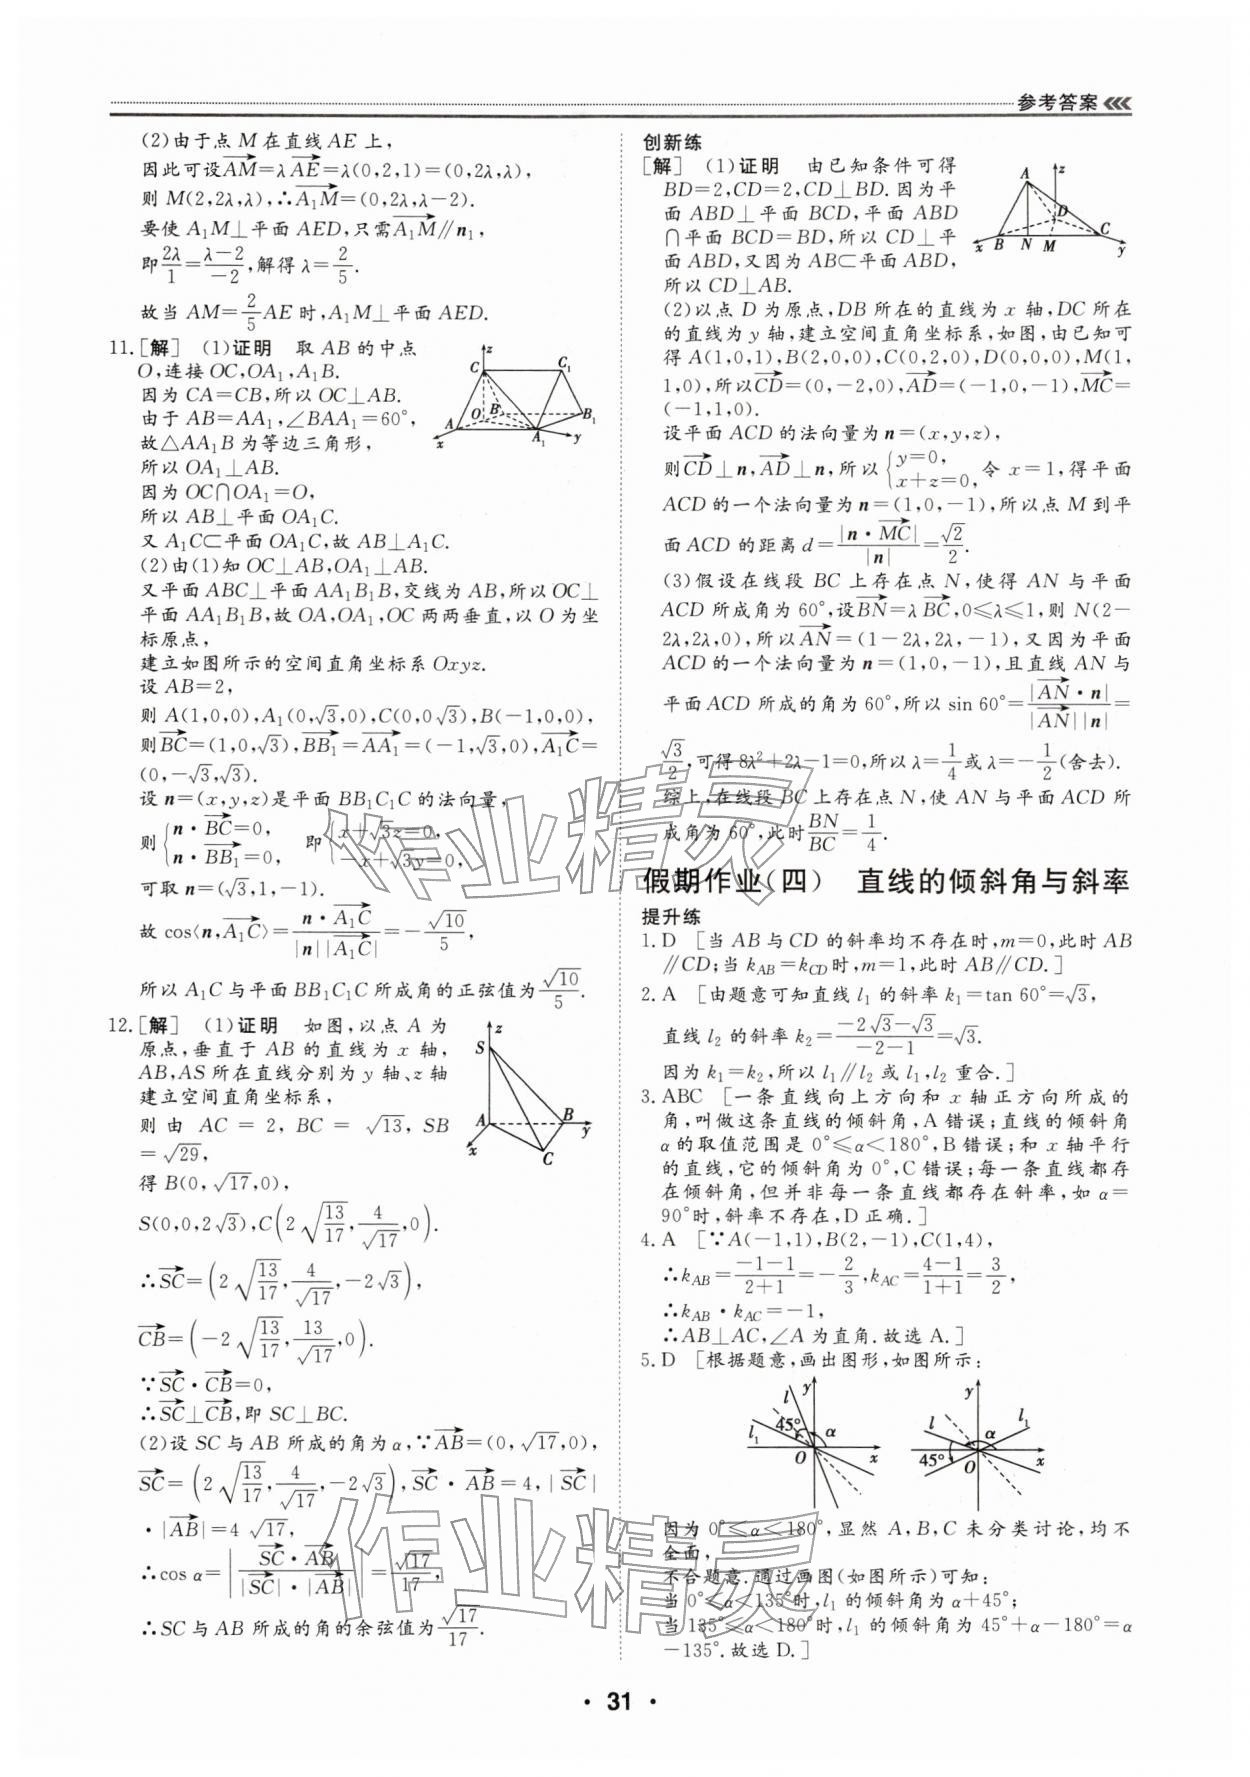 参考答案
(2)由于点 M 在直线 AE 上,
因此可设\overrightarrow{AM}=λ\overrightarrow{AE}=λ(0,2,1)=(0,2λ,λ),
则 M(2,2λ,λ),∴\overrightarrow{A₁M}=(0,2λ,λ-2).
要使 A₁M⊥平面 AED,只需\overrightarrow{A₁M}∥n₁,
即\frac{2λ}{1}=\frac{λ-2}{-2},解得 λ=\frac{2}{5}.
故当 AM=\frac{2}{5}AE 时,A₁M⊥平面 AED.
11.[解] (1)证明 取 AB 的中点
O,连接 OC,OA₁,A₁B.
因为 CA=CB,所以 OC⊥AB.
由于 AB=AA₁,∠BAA₁=60°,
故△AA₁B 为等边三角形,
所以 OA₁⊥AB.
因为 OC∩OA₁=O,
所以 AB⊥平面 OA₁C.
又 A₁C⊂平面 OA₁C,故 AB⊥A₁C.
(2)由(1)知 OC⊥AB,OA₁⊥AB.
又平面 ABC⊥平面 AA₁B₁B,交线为 AB,所以 OC⊥
平面 AA₁B₁B,故 OA,OA₁,OC 两两垂直,以 O 为坐
标原点,
建立如图所示的空间直角坐标系 Oxyz.
设 AB=2,
则 A(1,0,0),A₁(0,√3,0),C(0,0√3),B(-1,0,0),
则\overrightarrow{BC}=(1,0,√3),\overrightarrow{BB₁}=\overrightarrow{AA₁}=(-1,√3,0),\overrightarrow{A₁C}=
(0,-√3,√3).
设 n=(x,y,z)是平面 BB₁C₁C 的法向量,
则{n·\overrightarrow{BC}=0, n·\overrightarrow{BB₁}=0, 即{x+√3z=0, -x+√3y=0,
可取 n=(√3,1,-1).
故 cos⟨n,\overrightarrow{A₁C}⟩=\frac{n·\overrightarrow{A₁C}}{|n||\overrightarrow{A₁C}|}=-\frac{√10}{5},
所以 A₁C 与平面 BB₁C₁C 所成角的正弦值为\frac{√10}{5}.
12.[解] (1)证明 如图,以点 A 为
原点,垂直于 AB 的直线为 x 轴,
AB,AS 所在直线分别为 y 轴、z 轴
建立空间直角坐标系,
则由 AC = 2, BC = √13, SB
=√29,
得 B(0,√17,0),
S(0,0,2√3),C(2√\frac{13}{17},\frac{4}{√17},0).
∴\overrightarrow{SC}=(2√\frac{13}{17},\frac{4}{√17},-2√3),
\overrightarrow{CB}=(-2√\frac{13}{17},\frac{13}{√17},0).
∵\overrightarrow{SC}·\overrightarrow{CB}=0,
∴\overrightarrow{SC}⊥\overrightarrow{CB},即 SC⊥BC.
(2)设 SC 与 AB 所成的角为 α,∵\overrightarrow{AB}=(0,√17,0),
\overrightarrow{SC}=(2√\frac{13}{17},\frac{4}{√17},-2√3),\overrightarrow{SC}·\overrightarrow{AB}=4,|\overrightarrow{SC}|
·|\overrightarrow{AB}|=4√17,
∴cos α=|\frac{\overrightarrow{SC}·\overrightarrow{AB}}{|\overrightarrow{SC}|·|\overrightarrow{AB}|}|=\frac{√17}{17},
∴SC 与 AB 所成的角的余弦值为\frac{√17}{17}.
创新练
[解] (1)证明 由已知条件可得
BD=2,CD=2,CD⊥BD.因为平
面 ABD⊥平面 BCD,平面 ABD
∩平面 BCD=BD,所以 CD⊥平
面 ABD,又因为 AB⊂平面 ABD,
所以 CD⊥AB.
(2)以点 D 为原点,DB 所在的直线为 x 轴,DC 所在
的直线为 y 轴,建立空间直角坐标系,如图,由已知可
得 A(1,0,1),B(2,0,0),C(0,2,0),D(0,0,0),M(1,
1,0),所以\overrightarrow{CD}=(0,-2,0),\overrightarrow{AD}=(-1,0,-1),\overrightarrow{MC}=
(-1,1,0).
设平面 ACD 的法向量为 n=(x,y,z),
则\overrightarrow{CD}⊥n,\overrightarrow{AD}⊥n,所以{y=0, x+z=0, 令 x=1,得平面
ACD 的一个法向量为 n=(1,0,-1),所以点 M 到平
面 ACD 的距离 d=\frac{|n·\overrightarrow{MC}|}{|n|}=\frac{√2}{2}.
(3)假设在线段 BC 上存在点 N,使得 AN 与平面
ACD 所成角为 60°,设\overrightarrow{BN}=λ\overrightarrow{BC},0≤λ≤1,则 N(2-
2λ,2λ,0),所以\overrightarrow{AN}=(1-2λ,2λ,-1),又因为平面
ACD 的一个法向量为 n=(1,0,-1),且直线 AN 与
平面 ACD 所成的角为 60°,所以 sin 60°=\frac{|\overrightarrow{AN}·n|}{|\overrightarrow{AN}||n|}=
\frac{√3}{2},可得 8λ²+2λ-1=0,所以 λ=\frac{1}{4}或 λ=-\frac{1}{2}(舍去).
综上,在线段 BC 上存在点 N,使 AN 与平面 ACD 所
成角为 60°,此时\frac{BN}{BC}=\frac{1}{4}.
假期作业(四) 直线的倾斜角与斜率
提升练
1.D [当 AB 与 CD 的斜率均不存在时,m=0,此时 AB
∥CD;当 k_{AB}=k_{CD}时,m=1,此时 AB∥CD.]
2.A [由题意可知直线 l₁ 的斜率 k₁=tan 60°=√3,
直线 l₂ 的斜率 k₂=\frac{-2√3-√3}{-2-1}=√3.
因为 k₁=k₂,所以 l₁∥l₂ 或 l₁,l₂ 重合.]
3.ABC [一条直线向上方向和 x 轴正方向所成的
角,叫做这条直线的倾斜角,A 错误;直线的倾斜角
α 的取值范围是 0°≤α<180°,B 错误;和 x 轴平行
的直线,它的倾斜角为 0°,C 错误;每一条直线都存
在倾斜角,但并非每一条直线都存在斜率,如 α=
90°时,斜率不存在,D 正确.]
4.A [∵A(-1,1),B(2,-1),C(1,4),
∴k_{AB}=\frac{-1-1}{2+1}=-\frac{2}{3},k_{AC}=\frac{4-1}{1+1}=\frac{3}{2},
∴k_{AB}·k_{AC}=-1,
∴AB⊥AC,∠A 为直角.故选 A.]
5.D [根据题意,画出图形,如图所示:
因为 0°≤α<180°,显然 A,B,C 未分类讨论,均不
全面,
不合题意.通过画图(如图所示)可知:
当 0°≤α<135°时,l₁ 的倾斜角为 α+45°;
当 135°≤α<180°时,l₁ 的倾斜角为 45°+α-180°=α
-135°.故选 D.]
z C C₁ O B B₁ A A₁ x y
z S A B y x C
z A D C x B N M y
l y 45° α l₁ O x
y l l₁ α 45° O x
作业精灵
作业精灵
· 31 ·